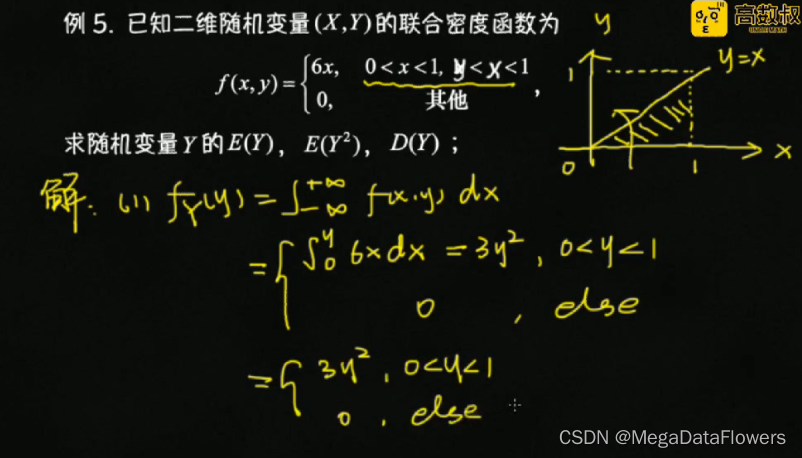 例 5. 已知二维随机变量(X,Y)的联合密度函数为
f(x,y)={6x, 0<x<1, y<x<1
0, 其他 ,
求随机变量Y的E(Y), E(Y²), D(Y);
高数叔
y
1
y=x
0
1
x
解: (1) f_Y(y) = ∫_{-∞}^{+∞} f(x,y) dx
= { ∫_0^y 6x dx = 3y², 0<y<1
0 , else
= { 3y², 0<y<1
0 , else
CSDN @MegaDataFlowers